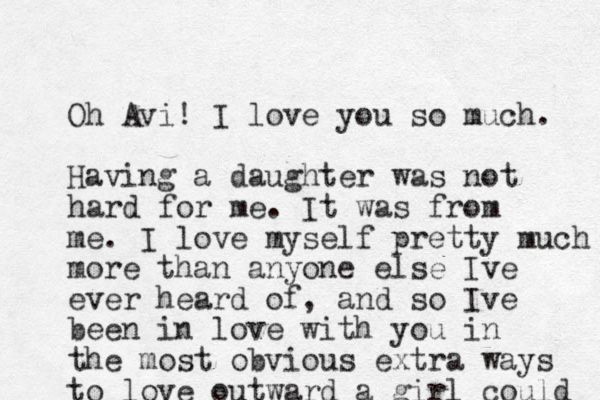 Oh Avi! I love you so much.
Having a daughter was not
hard for me. It was from
me. I love myself pretty much
more than anyone else Ive
ever heard of, and so Ive
been in love with you in
the most obvious extra ways
to love outward a girl could